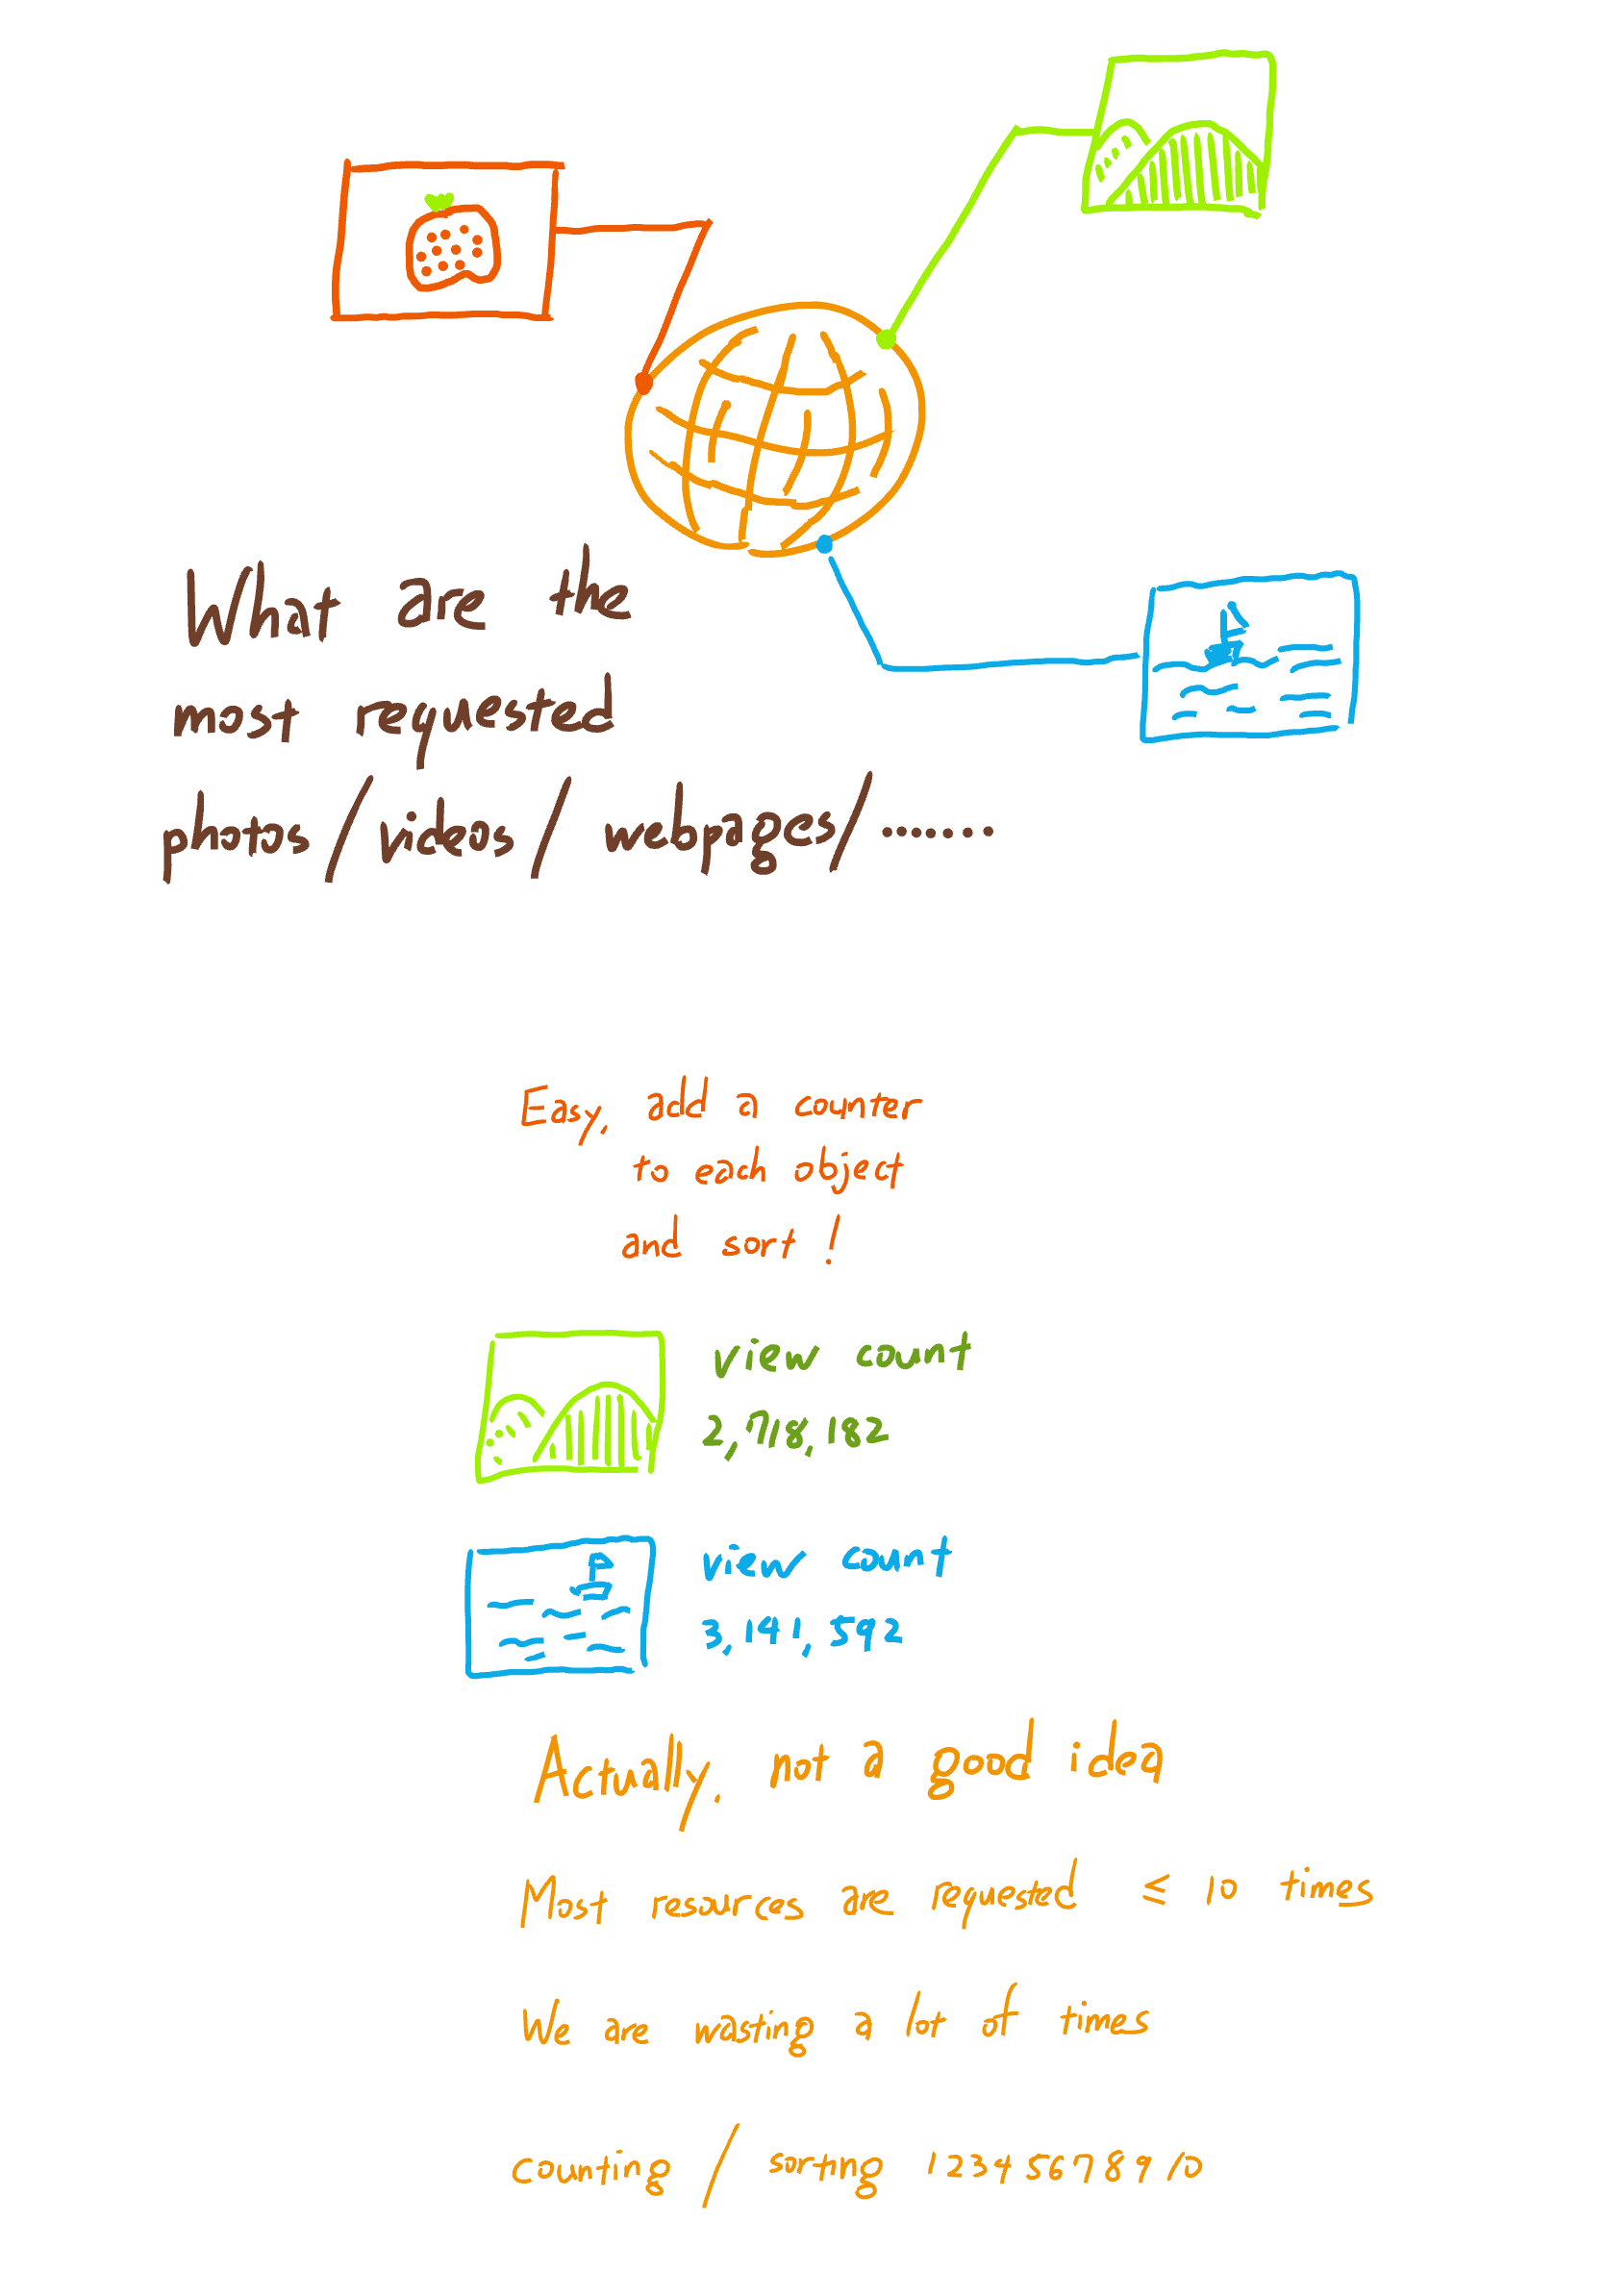 What are the
most requested
photos/videos/webpages/.......
Easy, add a counter
to each object
and sort!
view count
2,718,182
view count
3,141,592
Actually, not a good idea
Most resources are requested ≤ 10 times
We are wasting a lot of times
counting / sorting 1 2 3 4 5 6 7 8 9 10